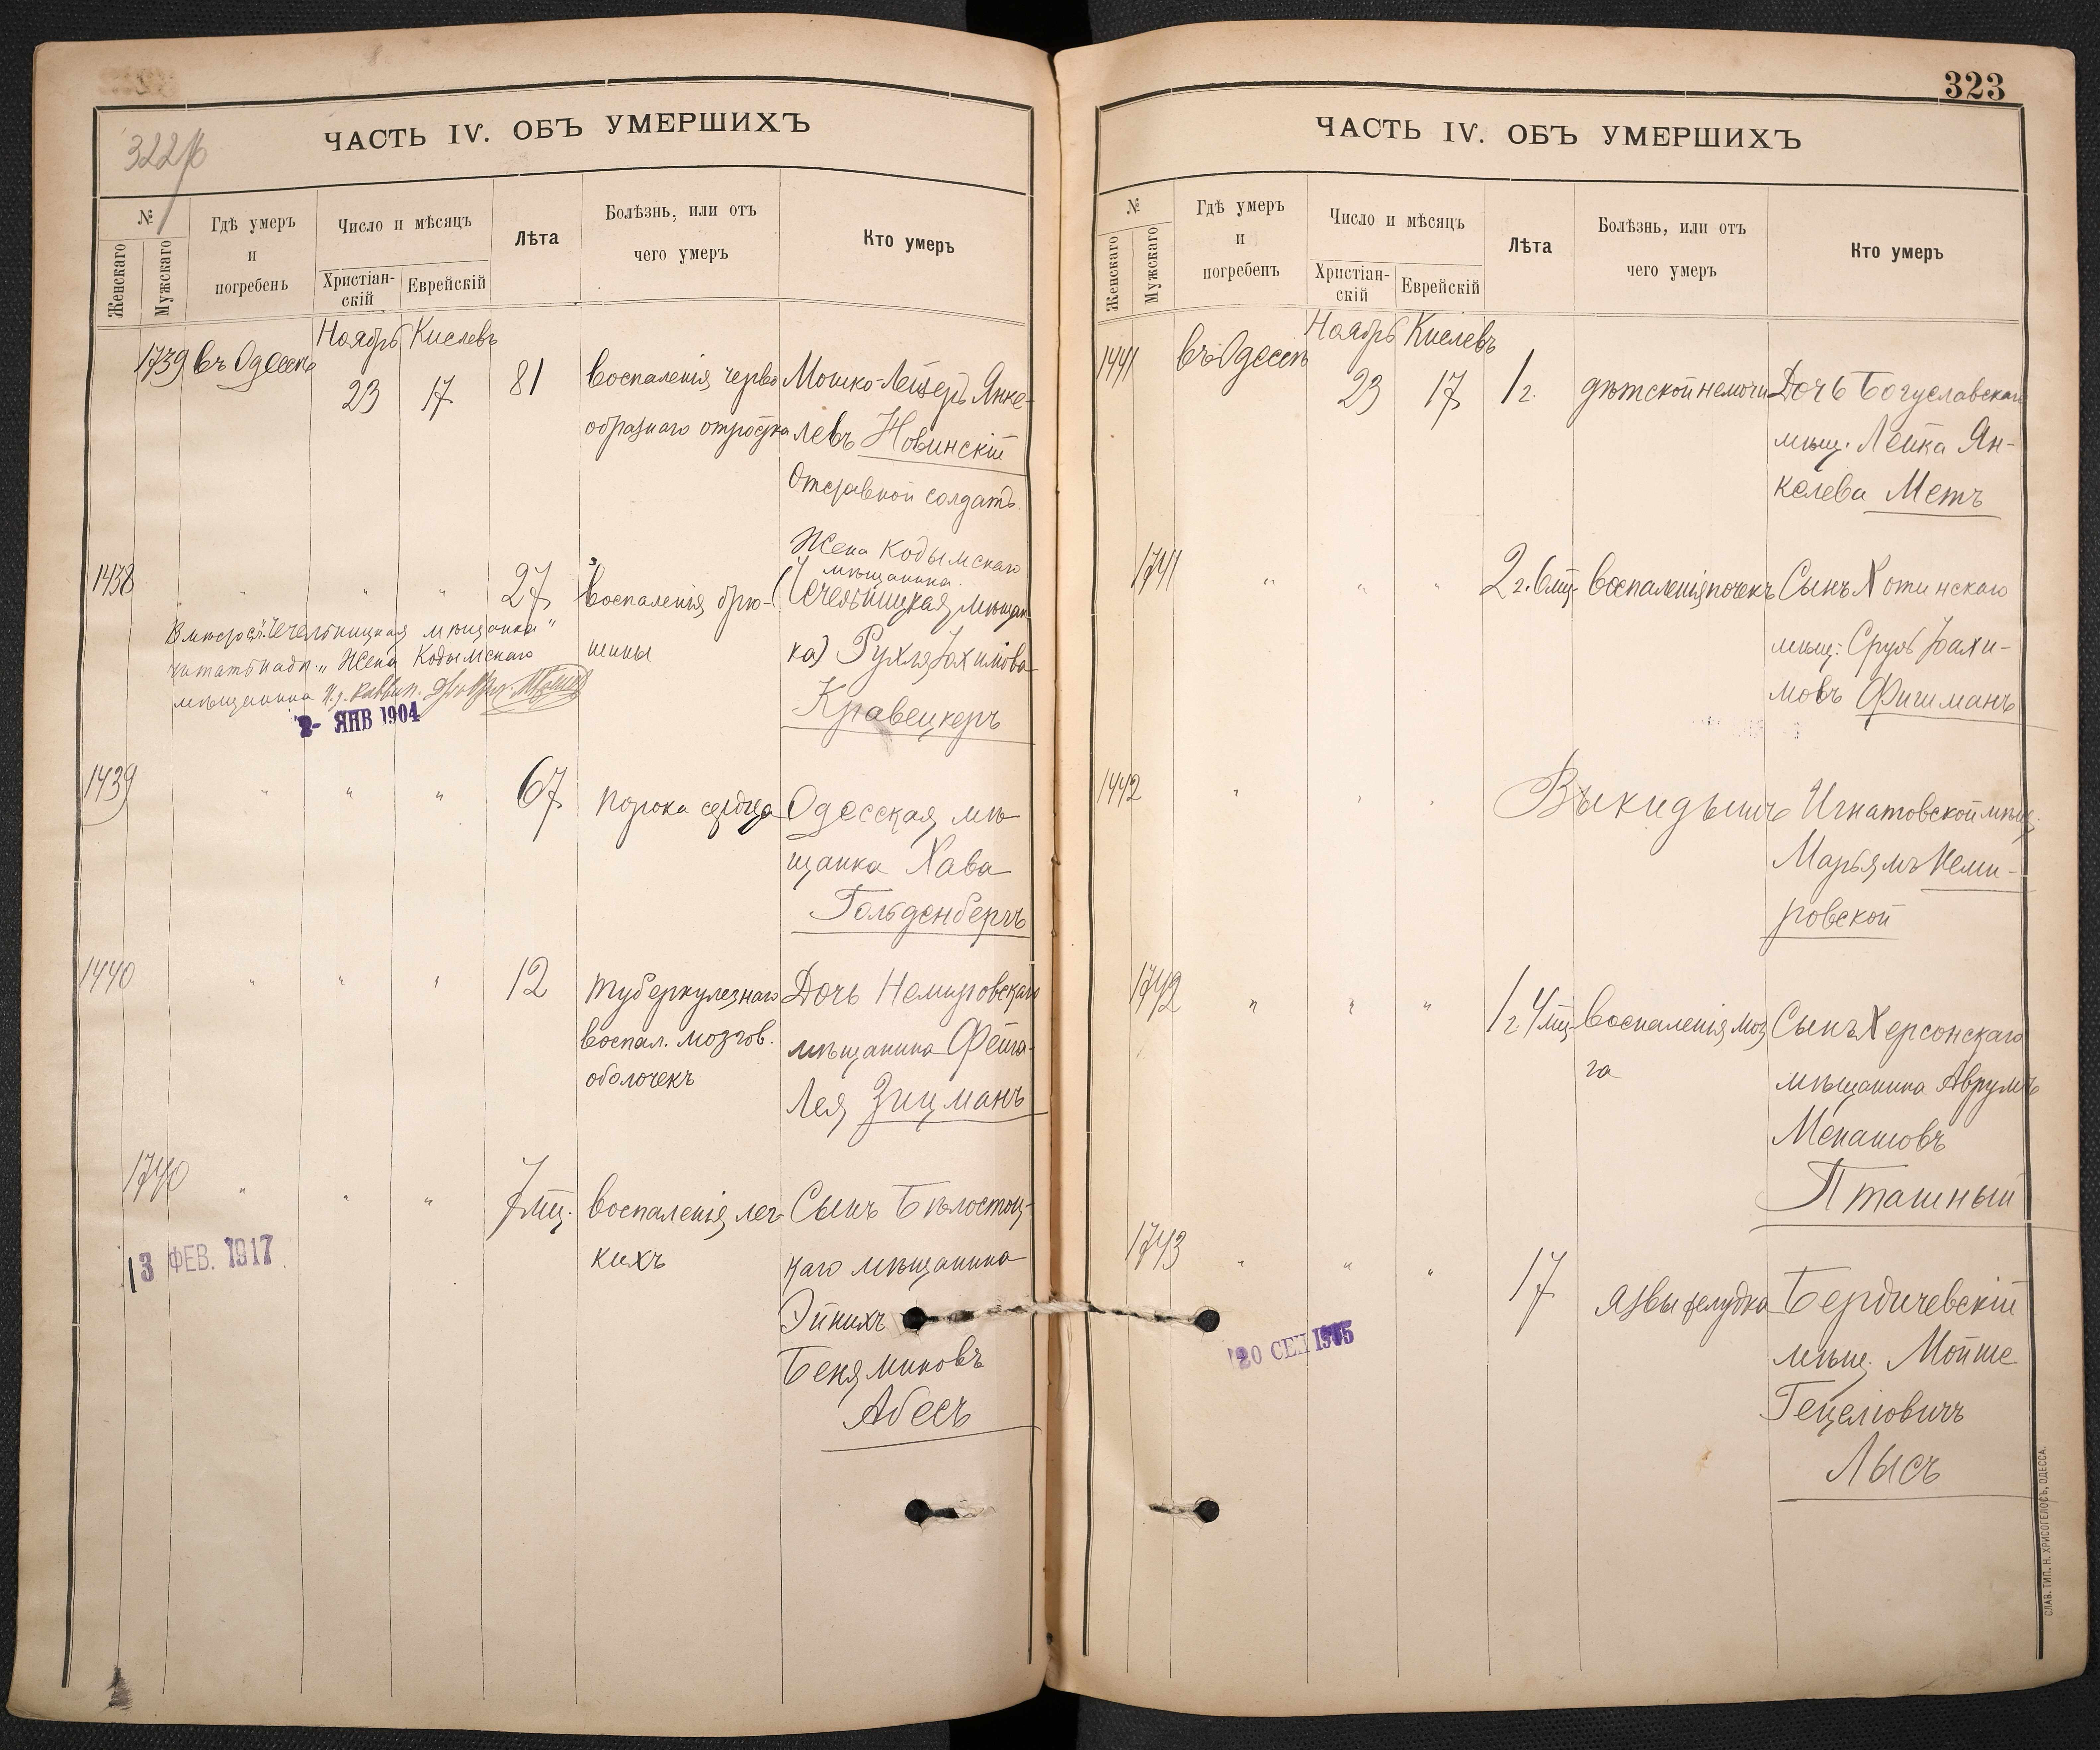 322 об
ЧАСТЬ IV. ОБЪ УМЕРШИХЪ
№
Женскаго
Мужскаго
Гдѣ умеръ
и
погребенъ
Число и мѣсяцъ
Христіан-
скій
Еврейскій
Лѣта
Болѣзнь, или отъ
чего умеръ
Кто умеръ
Ноябрь Кислевъ
1739 въ Одессѣ 23 17 81 воспаленія черво Мошко-Лейзеръ Янке-
образнаго отростка левъ Новинскій
Отставной солдатъ
Жена Кодымскаго
мѣщанина
1438 " " " 27 Воспаленія брю- (Чечельницкая мѣщан
шины ка) Рухля Іохимова
Кравецкеръ
Вмѣсто "Чечельницкая мѣщанка"
читать надп. "Жена Кодымскаго
мѣщанина И.д. раввин.
2- ЯНВ 1904
1439 " " " 67 порока сердца Одесская мѣ
щанка Хава
Гольденбергъ
1440 " " " 12 туберкулезнаго Дочь Немировскаго
воспал. мозгов. мѣщанина Фейга-
оболочекъ Лея Зицманъ
1740 " " " 7 мц. воспаленія лег- Сынъ Бѣлостоц-
кихъ каго мѣщанина
Эйнихъ
Беняминовъ
Абесъ
13 ФЕВ. 1917
323
ЧАСТЬ IV. ОБЪ УМЕРШИХЪ
№
Женскаго
Мужскаго
Гдѣ умеръ
и
погребенъ
Число и мѣсяцъ
Христіан-
скій
Еврейскій
Лѣта
Болѣзнь, или отъ
чего умеръ
Кто умеръ
Ноябрь Кислевъ
1441 въ Одессѣ 23 17 1 г. дѣтской немочи Дочь Богуславскаго
мѣщ. Лейка Ян-
келева Метъ
1741 " " " 2 г. 6 мц. воспаленія почекъ Сынъ Хотинскаго
мѣщ. Сруль Іохи-
мовъ Фишманъ
1442 " " " Выкидышъ Игнатовской мѣщ.
Марьямъ Неми-
ровской
1742 " " " 1 г. 4 мц. воспаленія моз Сынъ Херсонскаго
га мѣщанина Аврумъ
Менашовъ
Пташный
1743 " " " 17 язвы желудка Бердичевскій
мѣщ. Мойше
Гецеліовичъ
Лысъ
СЛАВ. ТИП. Н. ХРИСОГЕЛОСЪ, ОДЕССА.